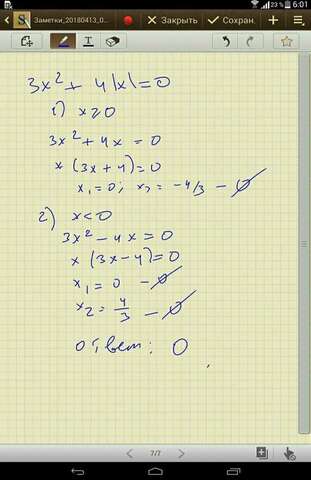 23 % 6:01
Заметки_20180413_0... Закрыть Сохран.
3x² + 4|x| = 0
1) x ≥ 0
3x² + 4x = 0
x (3x + 4) = 0
x₁ = 0; x₂ = -4/3 - ∅
2) x < 0
3x² - 4x = 0
x (3x - 4) = 0
x₁ = 0 - ∅
x₂ = 4/3 - ∅
ответ: 0
7/7